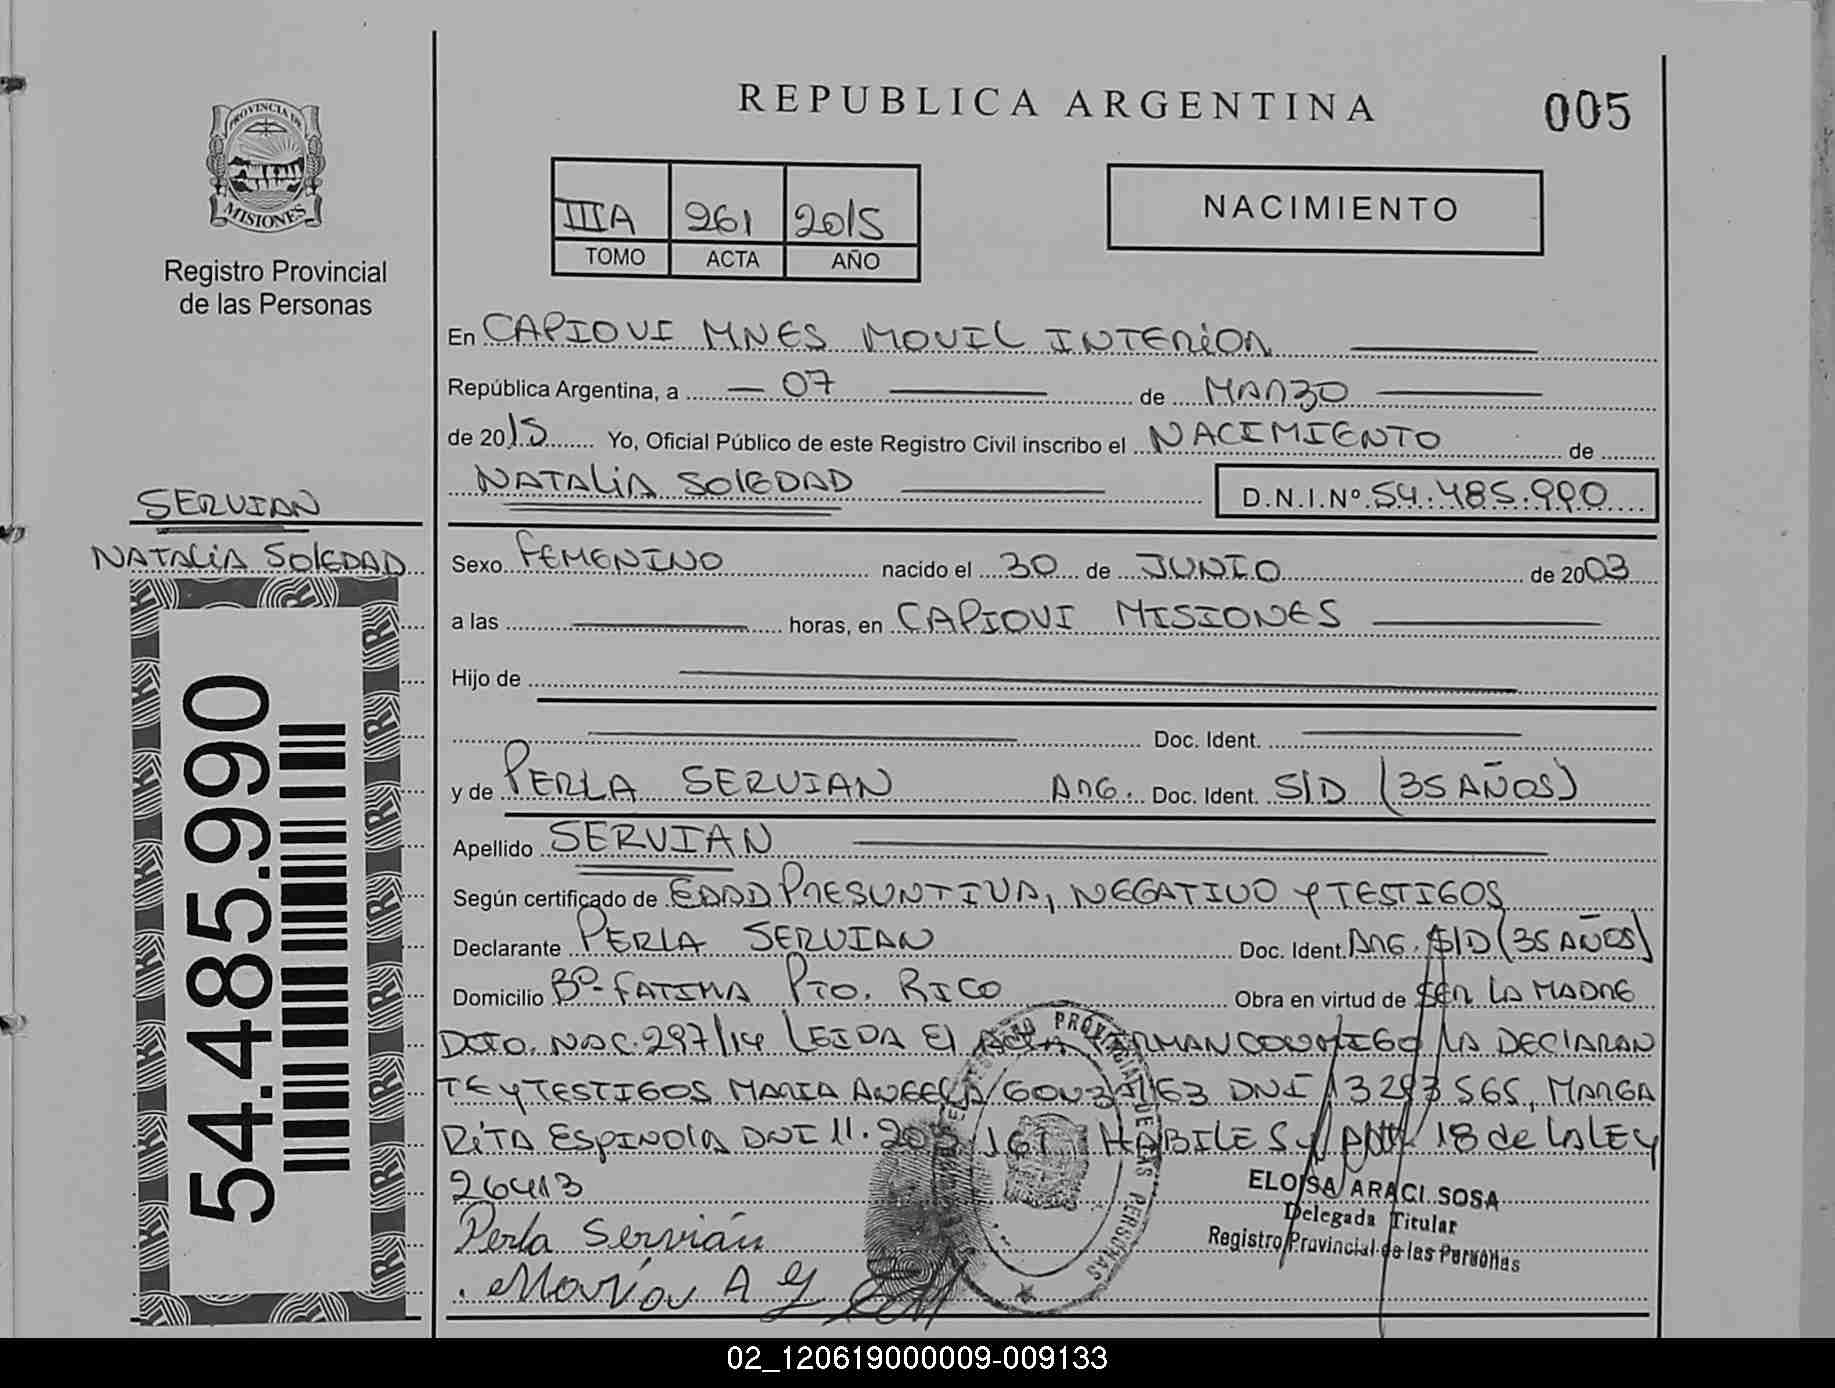 REPUBLICA ARGENTINA
005
PROVINCIA DE
MISIONES
Registro Provincial
de las Personas
IIIA 261 2015
TOMO ACTA AÑO
NACIMIENTO
En CAPIOVI MNES MOVIL INTERiOR
República Argentina, a 07 de MARZO
de 2015 Yo, Oficial Público de este Registro Civil inscribo el NACIMIENTO de
NATALiA SOlEDAD D.N.I.Nº 54.485.990
SERVIAN
NATALiA SOlEDAD
54.485.990
Sexo FEMENINO nacido el 30 de JUNIO de 2003
a las horas, en CAPIOVI MISIONES
Hijo de
Doc. Ident.
y de PERLA SERVIAN ARG. Doc. Ident. S/D (35 AÑOS)
Apellido SERVIAN
Según certificado de EDAD PRESUNTIVA, NEGATIVO y TESTIGOS
Declarante PERLA SERVIAN Doc. Ident. ARG. S/D (35 AÑOS)
Domicilio Bº FATIMA PTO. RICO Obra en virtud de SER LA MADRE
DCTO. NAC. 297/14 LEIDA El ACTA FIRMAN CONMIGO LA DEClARAN
TE y TESTIGOS MARIA ANGELA GONZALEZ DNI 13 293 565, MARGA
RiTA ESPINOlA DNI 11. HABILES y ART 18 de LA LEY
26413
Perla Servián
María A G
REGISTRO PROVINCIAL DE LAS PERSONAS
ELOISA ARACI SOSA
Delegada Titular
Registro Provincial de las Personas
02_120619000009-009133